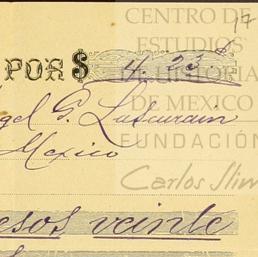 CENTRO DE
ESTUDIOS
17
POR $ 4.23.$
DE HISTORIA
DE MEXICO
gel G. Lascurain
FUNDACIÓN
Mexico
Carlos Slim
esos veinte